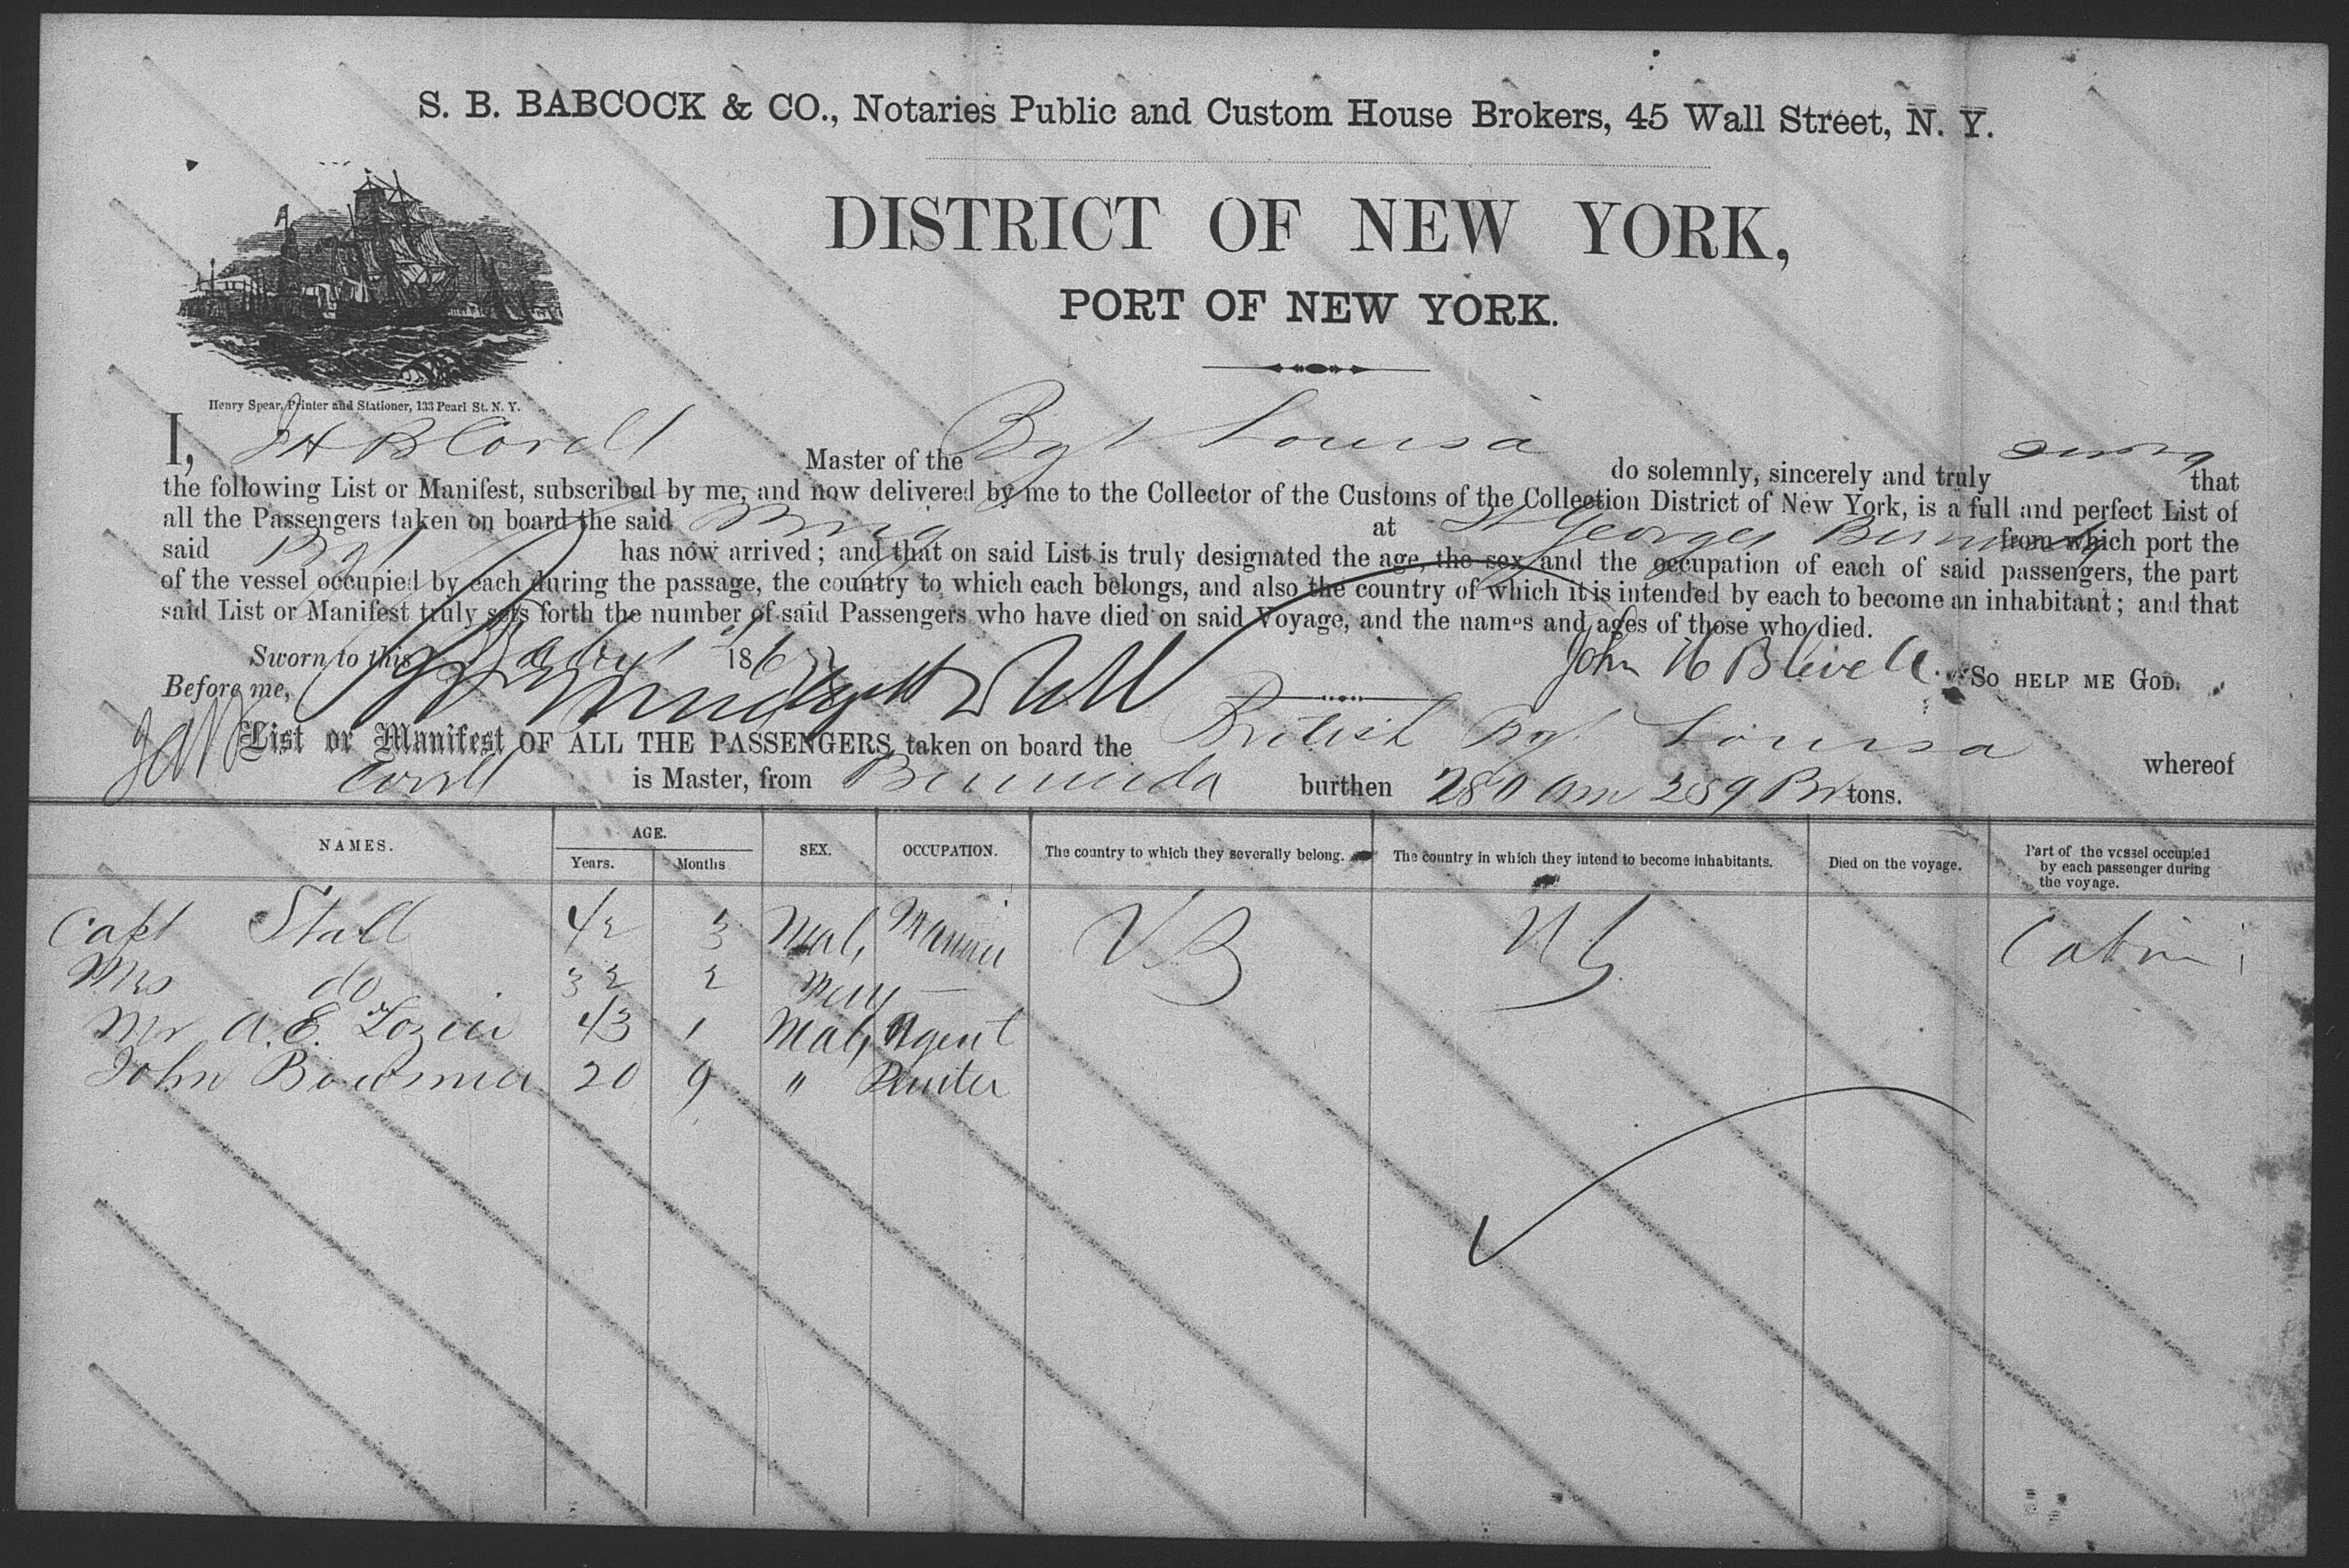 S. B. BABCOCK & CO., Notaries Public and Custom House Brokers, 45 Wall Street, N. Y.
DISTRICT OF NEW YORK,
PORT OF NEW YORK.
Henry Spear, Printer and Stationer, 133 Pearl St. N. Y.
I, J H B Master of the Bgt Louisa do solemnly, sincerely and truly swear that
the following List or Manifest, subscribed by me, and now delivered by me to the Collector of the Customs of the Collection District of New York, is a full and perfect List of
all the Passengers taken on board the said Brig at St Georges Bermuda from which port the
said Bgt has now arrived; and that on said List is truly designated the age, the sex and the occupation of each of said passengers, the part
of the vessel occupied by each during the passage, the country to which each belongs, and also the country of which it is intended by each to become an inhabitant; and that
said List or Manifest truly sets forth the number of said Passengers who have died on said Voyage, and the names and ages of those who died.
Sworn to this 186 John H B So HELP ME GOD.
Before me,
List or Manifest OF ALL THE PASSENGERS taken on board the British Bgt Louisa whereof
is Master, from Bermuda burthen 280 Am 259 Br tons.
NAMES. AGE. SEX. OCCUPATION. The country to which they severally belong. The country in which they intend to become inhabitants. Died on the voyage. Part of the vessel occupied by each passenger during the voyage.
Years. Months
Capt Stall 42 3 Male Mariner Cabin
Mrs do 32 2
Mr A. E. Lozier 43 1 Male Agent
John 20 9 "